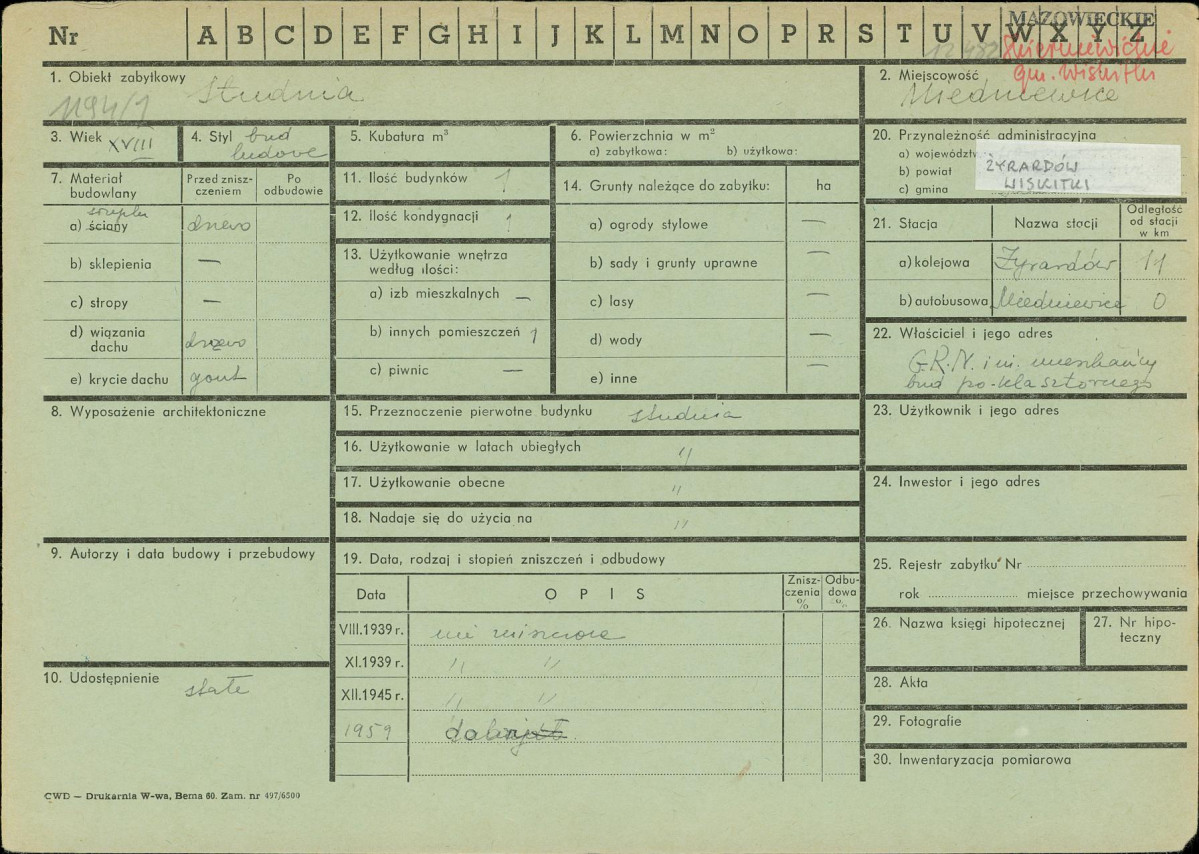 MAZOWIECKIE
Nr A B C D E F G H I J K L M N O P R S T U V W X Y Z
Skierniewickie
gm. Wiskitki
1. Obiekt zabytkowy
1194/1 Studnia
2. Miejscowość
Miedniewice
3. Wiek XVIII
4. Styl bud
ludowe
5. Kubatura m³
6. Powierzchnia w m²
a) zabytkowa: b) użytkowa:
20. Przynależność administracyjna
a) województw
b) powiat
c) gmina
ŻYRARDÓW
WISKITKI
7. Materiał budowlany
Przed zniszczeniem
Po odbudowie
a) ściany drzewo
b) sklepienia —
c) stropy —
d) wiązania dachu drzewo
e) krycie dachu gont
11. Ilość budynków 1
12. Ilość kondygnacji 1
13. Użytkowanie wnętrza według ilości:
a) izb mieszkalnych —
b) innych pomieszczeń 1
c) piwnic —
14. Grunty należące do zabytku: ha
a) ogrody stylowe —
b) sady i grunty uprawne —
c) lasy —
d) wody —
e) inne —
21. Stacja Nazwa stacji Odległość od stacji w km
a) kolejowa Żyrardów 11
b) autobusowa Miedniewice 0
22. Właściciel i jego adres
G.R.N. i m. mieszkańcy
bud po-klasztornego
8. Wyposażenie architektoniczne
15. Przeznaczenie pierwotne budynku studnia
16. Użytkowanie w latach ubiegłych "
17. Użytkowanie obecne "
18. Nadaje się do użycia na "
23. Użytkownik i jego adres
24. Inwestor i jego adres
9. Autorzy i data budowy i przebudowy
19. Data, rodzaj i stopień zniszczeń i odbudowy
Data OPIS Zniszczenia % Odbudowa %
VIII.1939 r. nie zniszczone
XI.1939 r. " "
XII.1945 r. " "
1959
25. Rejestr zabytku Nr
rok miejsce przechowywania
26. Nazwa księgi hipotecznej
27. Nr hipoteczny
10. Udostępnienie stałe
28. Akta
29. Fotografie
30. Inwentaryzacja pomiarowa
CWD — Drukarnia W-wa, Bema 60. Zam. nr 497/6500